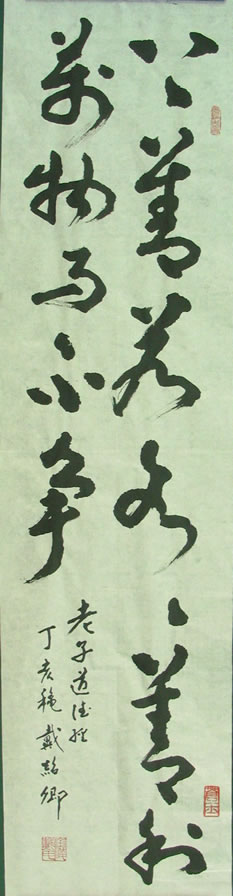 上善若水〻善利
萬物而不爭
老子道德經
丁亥穐戴紹卿